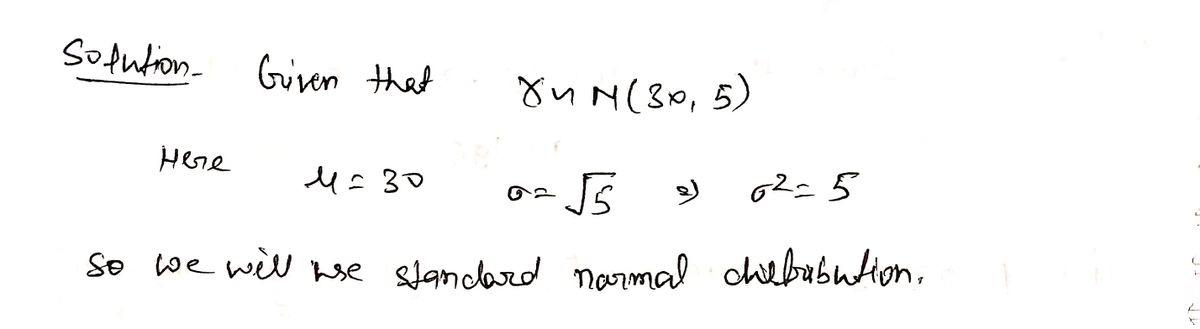 Solution- Given that X ~ N(30, 5)
Here μ = 30 σ = √5 ⇒ σ² = 5
So we will use standard normal distribution.